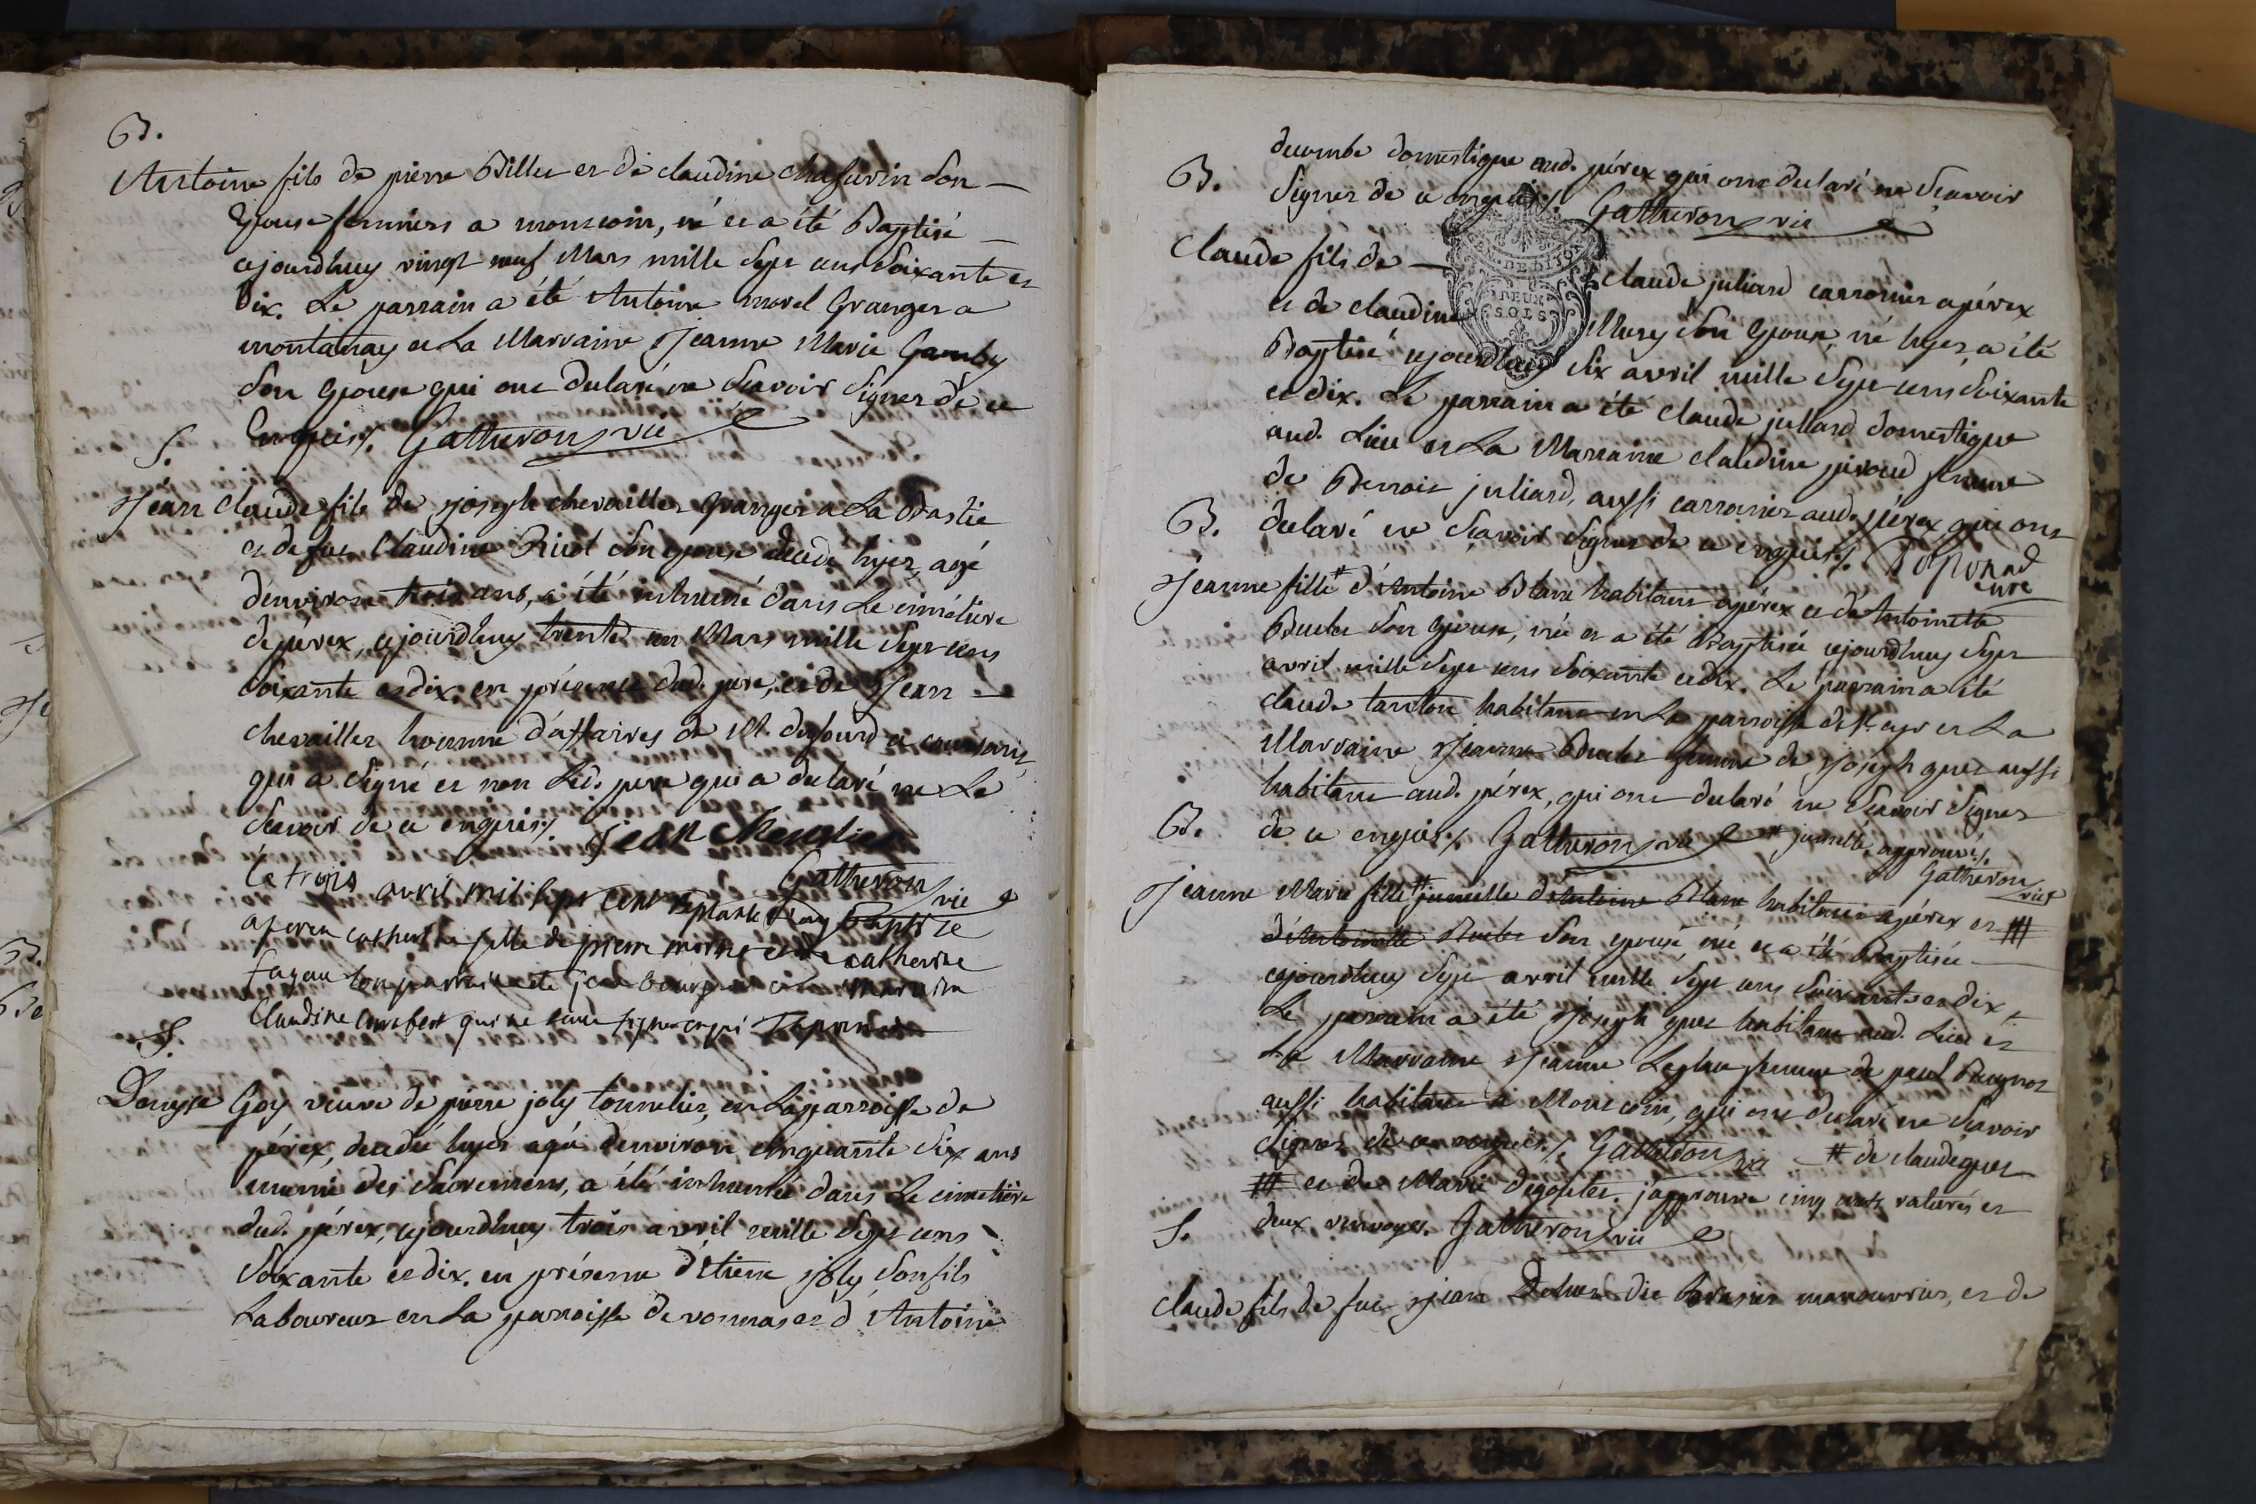 B.
Antoine fils de pierre Billet et de claudine Chafurin son
Epouse fermiers a montcoin, né et a été Baptisé
cejourdhuy vingt neuf Mars mille Sept cens Soixante et
Dix. Le parrain a été Antoine morel Granger a
montanay et La Marraine Jeanne Marie Gamby
Son Epouse qui ont declaré ne Scavoir Signer de ce
Enquis. Gatheron vic
S.
Jean Claude fils de Joseph chevaillier Granger a La Bastie
et de fue Claudine Rivot Son Epouse decedé hyer, agé
d'environ trois ans, a été inhumé dans Le cimetiere
de pérex, cejourdhuy trente un Mars mille Sept cens
Soixante et dix, en présence dud. pere, et de Jean
chevaillier homme d'affaires de M. dufourd a
qui a Signé et non Led. pere qui a declaré ne Le
Scavoir de ce enquis
Gatheron vic
Le trois avril mil sept cent septante Jay baptize
a perex catherine fille de pierre morne et de catherine
son parrain a été et marraine
Claudine qui ne
S.
Denyse Goy veuve de pierre joly tonnelier, en La parroisse de
pérex, decedée hyer agée d'environ cinquante Six ans
munie des Sacremens, a été inhumée dans Le cimetière
dud. pérex, cejourdhuy trois avril mille Sept cens
Soixante et dix. en présence d'étiene joly Son fils
Laboureur en La parroisse de vonnas et d'Antoine
decombe domestique aud. pérex qui ont declaré ne Scavoir
Signer de ce enquis. Gatheron vic
B.
DEUX
SOLS
Claude fils de Claude juliard carronier a pérex
et de claudine Mury Son Epouse, né hyer, a été
Baptisé cejourdhuy Six avril mille Sept cens Soixante
et dix. Le parrain a été claude juliard domestique
aud. Lieu et La Marraine claudine péroud femme
de Benoit juliard, aussi carronier aud. pérex qui ont
declaré ne Scavoir Signer de ce enquis.
B.
Jeanne fille # d'Antoine Blanc habitant a pérex et de Antoinette
Buelet Son Epouse, née et a été Baptisée cejourdhuy Sept
avril mille Sept cens Soixante et dix. Le parrain a été
claude tanton habitant en La parroisse de St. cyr et La
Marraine Jeanne Buelet femme de Joseph guet aussi
habitant aud. pérex, qui ont declaré ne Scavoir Signer
de ce enquis. Gatheron vic # jumelle, approuvé.
Gatheron vic
B.
Jeanne Marie fille # jumelle d'Antoine Blanc habitant a pérex et ##
d'Antoinette Buelet Son Epouse née et a été Baptisée
cejourdhuy Sept avril mille Sept cens Soixante et dix.
Le parrain a été Joseph guet habitant aud. Lieu et
La Marraine Jeanne femme de paul Buynot
aussi habitant a Montcoin, qui ont declaré ne Scavoir
Signer de ce enquis. Gatheron vic # de claude guet
## et de Marie Degoutes. j'approuve cinq mots raturés et
deux renvoyes. Gatheron vic
S.
Claude fils de fue Jean Dolivet dit brasier manouvrier, et de